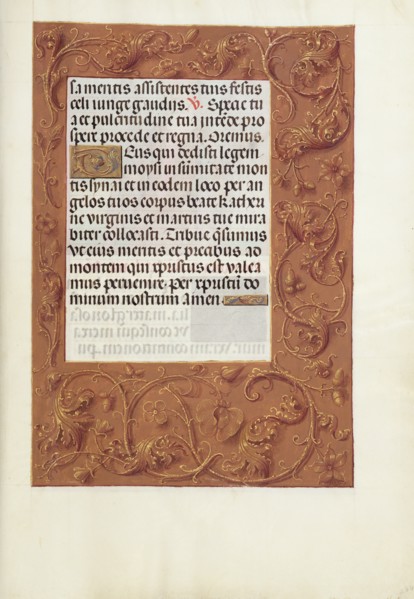 sa mentis assistentes tuis festis
celi iunge gaudiis. V. Specie tu
a et pulcritudine tua intēde pro
spere procede et regna. Oremus.
Eus qui dedisti legem
moysi in sumitate mon
tis synai et in eodem loco per an
gelos tuos corpus beate katheri
ne virginis et martiris tue mira
biliter collocasti. Tribue q̄sumus
vt eius meritis et precibus ad
montem qui xpristus est valea
mus peruenire. Per xpristū do
minum nostrum Amen.